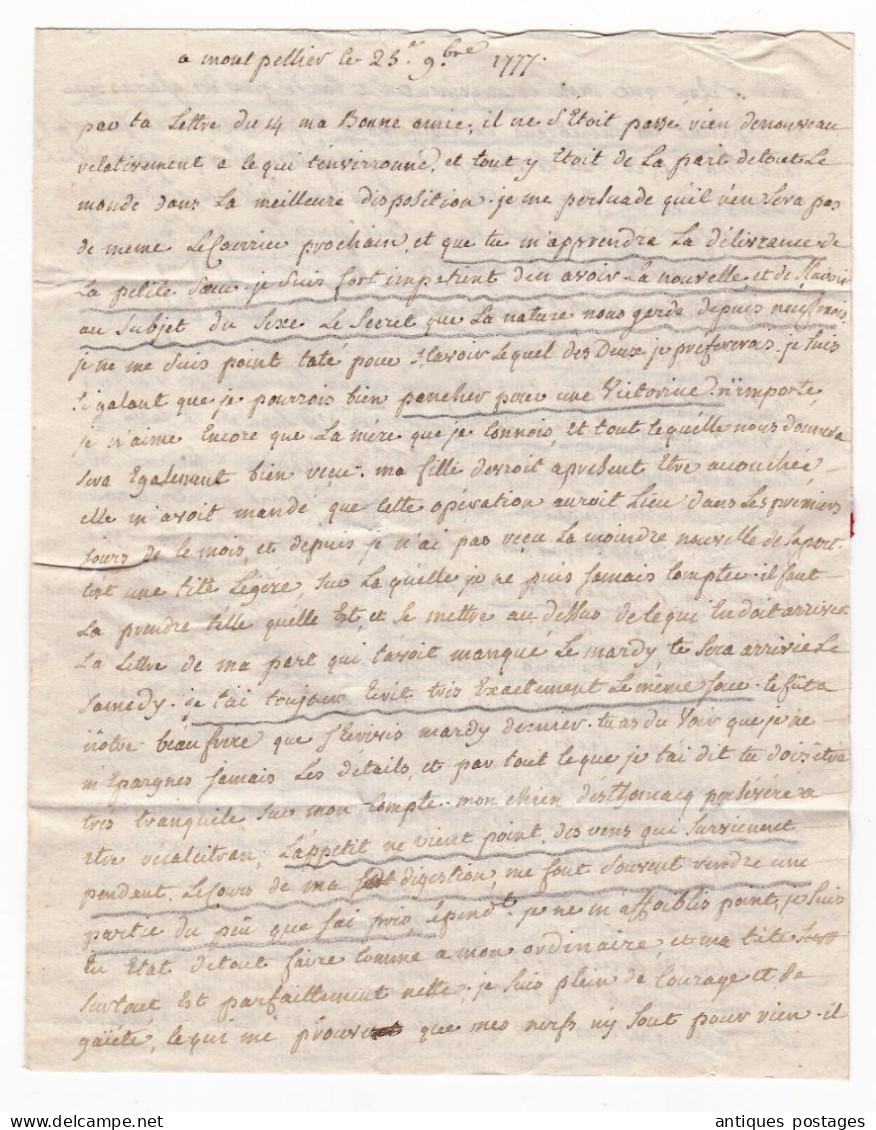 a montpellier le 25.e 9.bre 1777.
par ta Lettre du 14 ma Bonne amie, il ne s'Etoit passé rien denouveau
relativement a ce qui t'envirronne, et tout y Etoit de La part de tout Le
monde dans La meilleure disposition. je me persuade qu'il n'en sera pas
de meme Le Courrier prochain, et que tu m'apprendra La délivrance de
La petite Sœur. je suis fort impatient d'en avoir La nouvelle, et de sçavoir
au Subjet du Sexe Le Secret que La nature nous garde depuis neuf mois
je ne me suis point taté pour sçavoir Lequel des Deux je prefererois. je suis
si galant que je pourrois bien pancher pour une Victorine. n'importe,
je n'aime Encore que La mére que je connois, Et tout ce qu'elle nous donnera
sera Egalement bien venu. ma fille devroit aprésent Etre acouchée
elle m'avoit mandé que cette opération auroit Lieu dans Les premiers
jours de ce mois, et depuis je n'ai pas reçu La moindre nouvelle de sa part.
c'est une tête Légére, sur La quélle je ne puis jamais compter. il faut
La prendre télle quélle Est, et se mettre au dessus de ce qui En doit arriver
La Lettre de ma part qui t'avoit manqué Le mardy te sera arrivée Le
Samedy. je t'ai toujours Ecrit trés Exactement Le même jour. ce fût a
nôtre beaufrere que j'Ecrivis mardy dernier. tu as du Voir que je ne
m'Epargnes jamais Les détails, et par tout ce que je t'ai dit tu dois être
trés tranquile sur mon compte. mon chien d'ésthomacq persévére a
etre recalcitran, L'appetit ne vient point, des vens qui surviennent
pendent Le Cours de ma digestion, me font souvent rendre une
partie du peu que j'ai pris, cépend.t je ne m'affoiblis point, je suis
En Etat de tout faire comme a mon ordinaire, et ma tête
surtout Est parfaittement nette. je suis plein de Courage et de
gaiété, ce qui me prouve que mes nerfs n'y sont pour rien. il
antiques postages